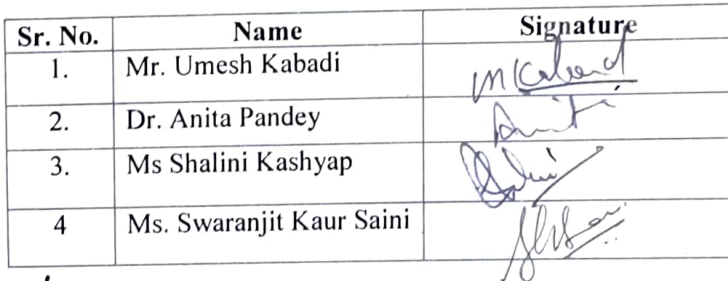 Sr. No. Name Signature
1. Mr. Umesh Kabadi
2. Dr. Anita Pandey Anita
3. Ms Shalini Kashyap
4 Ms. Swaranjit Kaur Saini